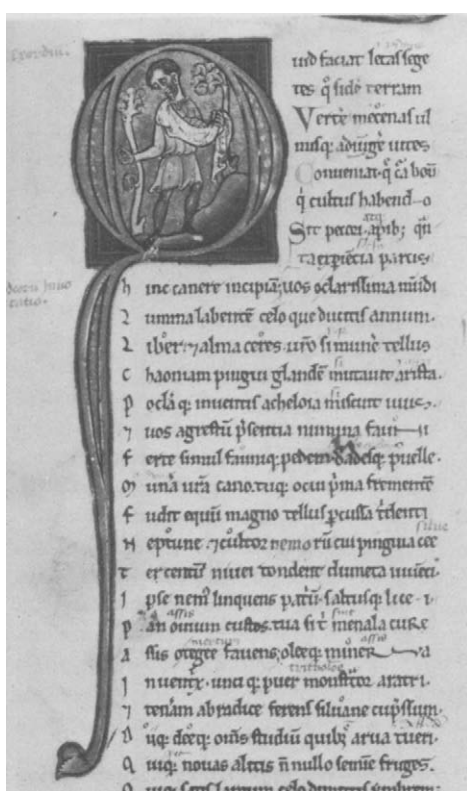 Quid faciat letas sege
tes q̊ side terram
Verte mecenas ul
misq; adiūgẽ uites
Conueniat· q̄ cā boū
q̇ cultus habend-o
Sit pecori· apib; qn̄
ta expiēcia parcis·
deorū inuo
catio·
hinc canere incipiā; uos o clarissima mūdi
Lumina labentē celo que ducitis annum·
Liber· ⁊ alma ceres· uŕo si munẽ tellus
Chaoniam pingui glandē mutauit arista·
Poclá q; inuentis acheloia miscuit uuis,
⁊ uos agrestū p̄sentia numina fauni
ferte simul fauniq; pedem dr̄iadesq; puelle·
Munã uŕa cano· tuq; o cui p̄ma frementē
fudit equū magno tellus p̄cussa t̓denti
siluæ
Neptune· ⁊ cultor nemorū cui pinguia cee
Tercentū niuei tondent dumeta iuuēci·
Ipse nem̓ linquens pat̓ū· saltusq; lice-i
Pan ouium custos· tua si t̓ menala cure
assis
Assis o tegeē fauens; oleeq; miner-a
Inuent̓x· unci q; puer monst̓tor arat̓i·
⁊ tenām ab radice ferens siluane cup̄ssum·
Dīiq; deeq; om̄s studiū quib; arua tueri·
Quiq; nouas alitis n̄ nullo semīe fruges·
Quiq; satis largum celo demittitis ymbrem·